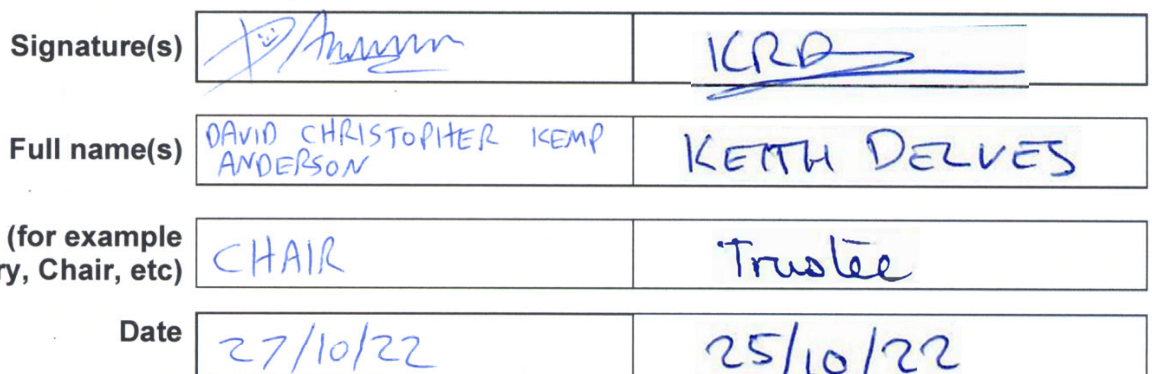 Signature(s) KRD
Full name(s) DAVID CHRISTOPHER KEMP KEITH DELVES
ANDERSON
(for example
ry, Chair, etc) CHAIR Trustee
Date 27/10/22 25/10/22